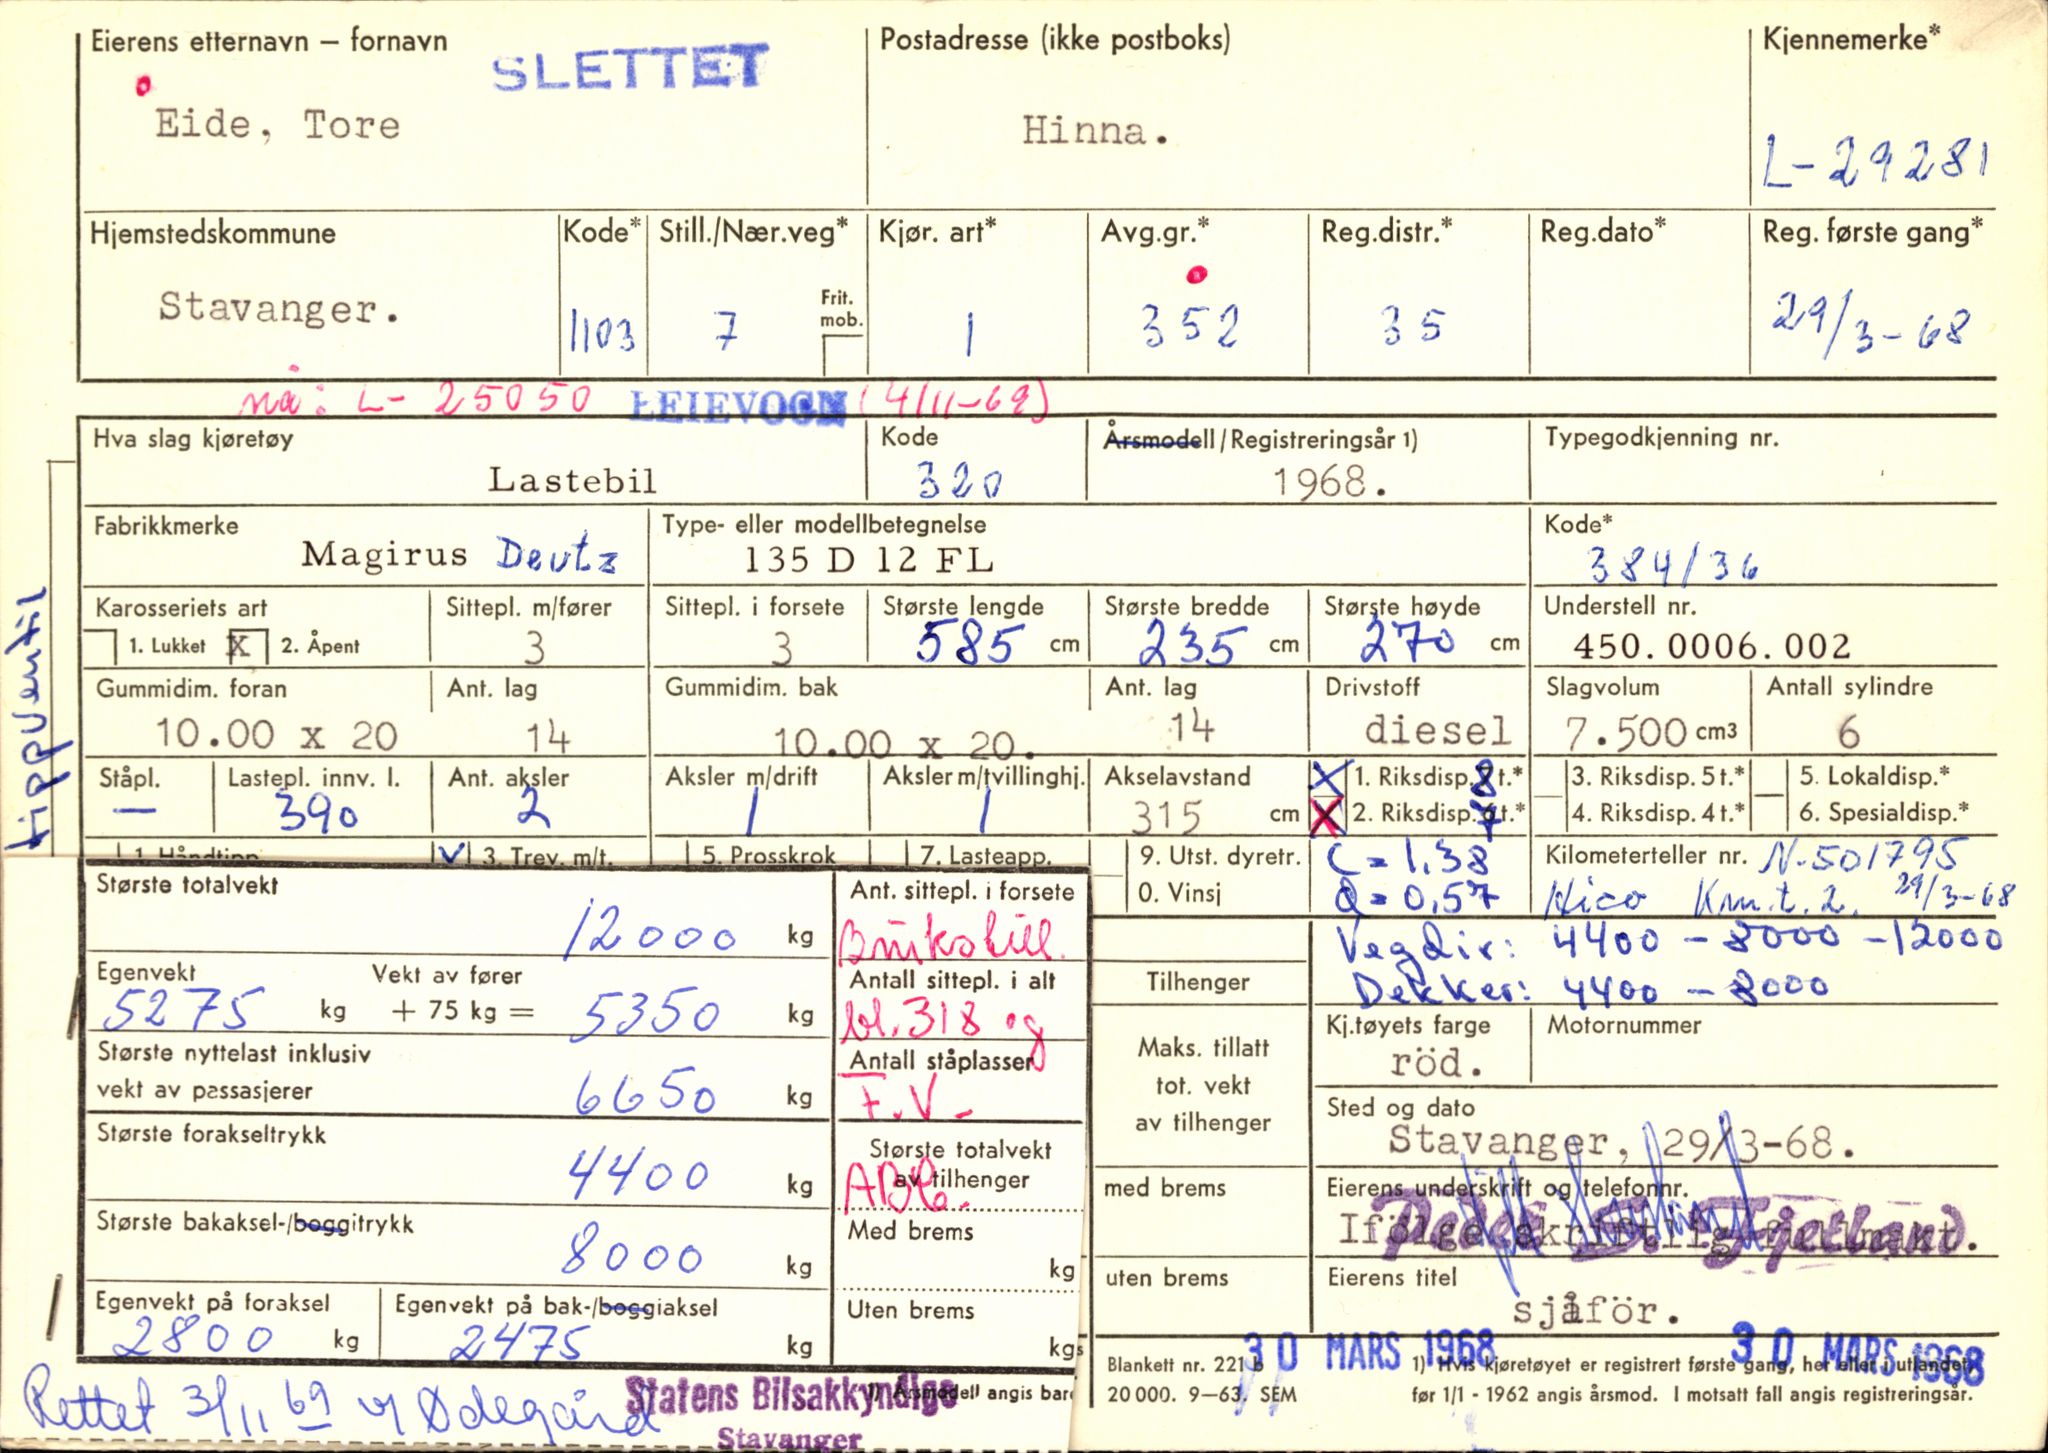 Eierens etternavn – fornavn
SLETTET
Postadresse (ikke postboks)
Kjennemerke*
Eide, Tore
Hinna.
L-29281
Hjemstedskommune
Kode*
Still./Nær.veg*
Kjør. art*
Avg.gr.*
Reg.distr.*
Reg.dato*
Reg. første gang*
Stavanger.
1103
7
Frit. mob.
1
352
35
29/3-68
nå: L- 25050 LEIEVOGN (4/11-69)
Hva slag kjøretøy
Kode
Årsmodell/Registreringsår 1)
Typegodkjenning nr.
Lastebil
320
1968.
Fabrikkmerke
Type- eller modellbetegnelse
Kode*
Magirus Deutz
135 D 12 FL
384/36
Karosseriets art
Sittepl. m/fører
Sittepl. i forsete
Største lengde
Største bredde
Største høyde
Understell nr.
1. Lukket X 2. Åpent
3
3
585 cm
235 cm
270 cm
450.0006.002
Gummidim. foran
Ant. lag
Gummidim. bak
Ant. lag
Drivstoff
Slagvolum
Antall sylindre
10.00 x 20
14
10.00 x 20.
14
diesel
7.500 cm3
6
Ståpl.
Lastepl. innv. l.
Ant. aksler
Aksler m/drift
Aksler m/tvillinghj.
Akselavstand
X 1. Riksdisp. 8 t.*
3. Riksdisp. 5 t.*
5. Lokaldisp.*
—
390
2
1
1
315 cm
X 2. Riksdisp. 7 t.*
4. Riksdisp. 4 t.*
6. Spesialdisp.*
tippventil
1. Håndtipp
V 3. Trev. m/t.
5. Prosskrok
7. Lasteapp.
9. Utst. dyretr.
0. Vinsj
C = 1,38
Q = 0,57
Kilometerteller nr. N-501795
Hico Km.t. 2. 29/3-68
Største totalvekt
12000 kg
Ant. sittepl. i forsete
Brukstill.
VegDir: 4400 - 8000 - 12000
Dekker: 4400 - 8000
Egenvekt
Vekt av fører
5275 kg + 75 kg = 5350 kg
Antall sittepl. i alt
bl. 318 og
Tilhenger
Kj.tøyets farge
Motornummer
röd.
Største nyttelast inklusiv
vekt av passasjerer
6650 kg
Antall ståplasser
F.V.
Maks. tillatt
tot. vekt
av tilhenger
Sted og dato
Stavanger, 29/3-68.
Største forakseltrykk
4400 kg
Største totalvekt
av tilhenger
med brems
Eierens underskrift og telefonnr.
Ifölge skriftlig fullmakt.
Største bakaksel-/boggitrykk
8000 kg
Med brems
kg
uten brems
Eierens titel
sjåför.
Egenvekt på foraksel
Egenvekt på bak-/boggiaksel
2800 kg
2475 kg
Uten brems
kg
30 MARS 1968
30 MARS 1968
Blankett nr. 221 b
20 000. 9–63. SEM
1) Hvis kjøretøyet er registrert første gang, her eller i utlandet,
før 1/1 - 1962 angis årsmod. I motsatt fall angis registreringsår.
1) Årsmodell angis bare
Rettet 3/11 69 v/ Ødegård
Statens Bilsakkyndige
Stavanger